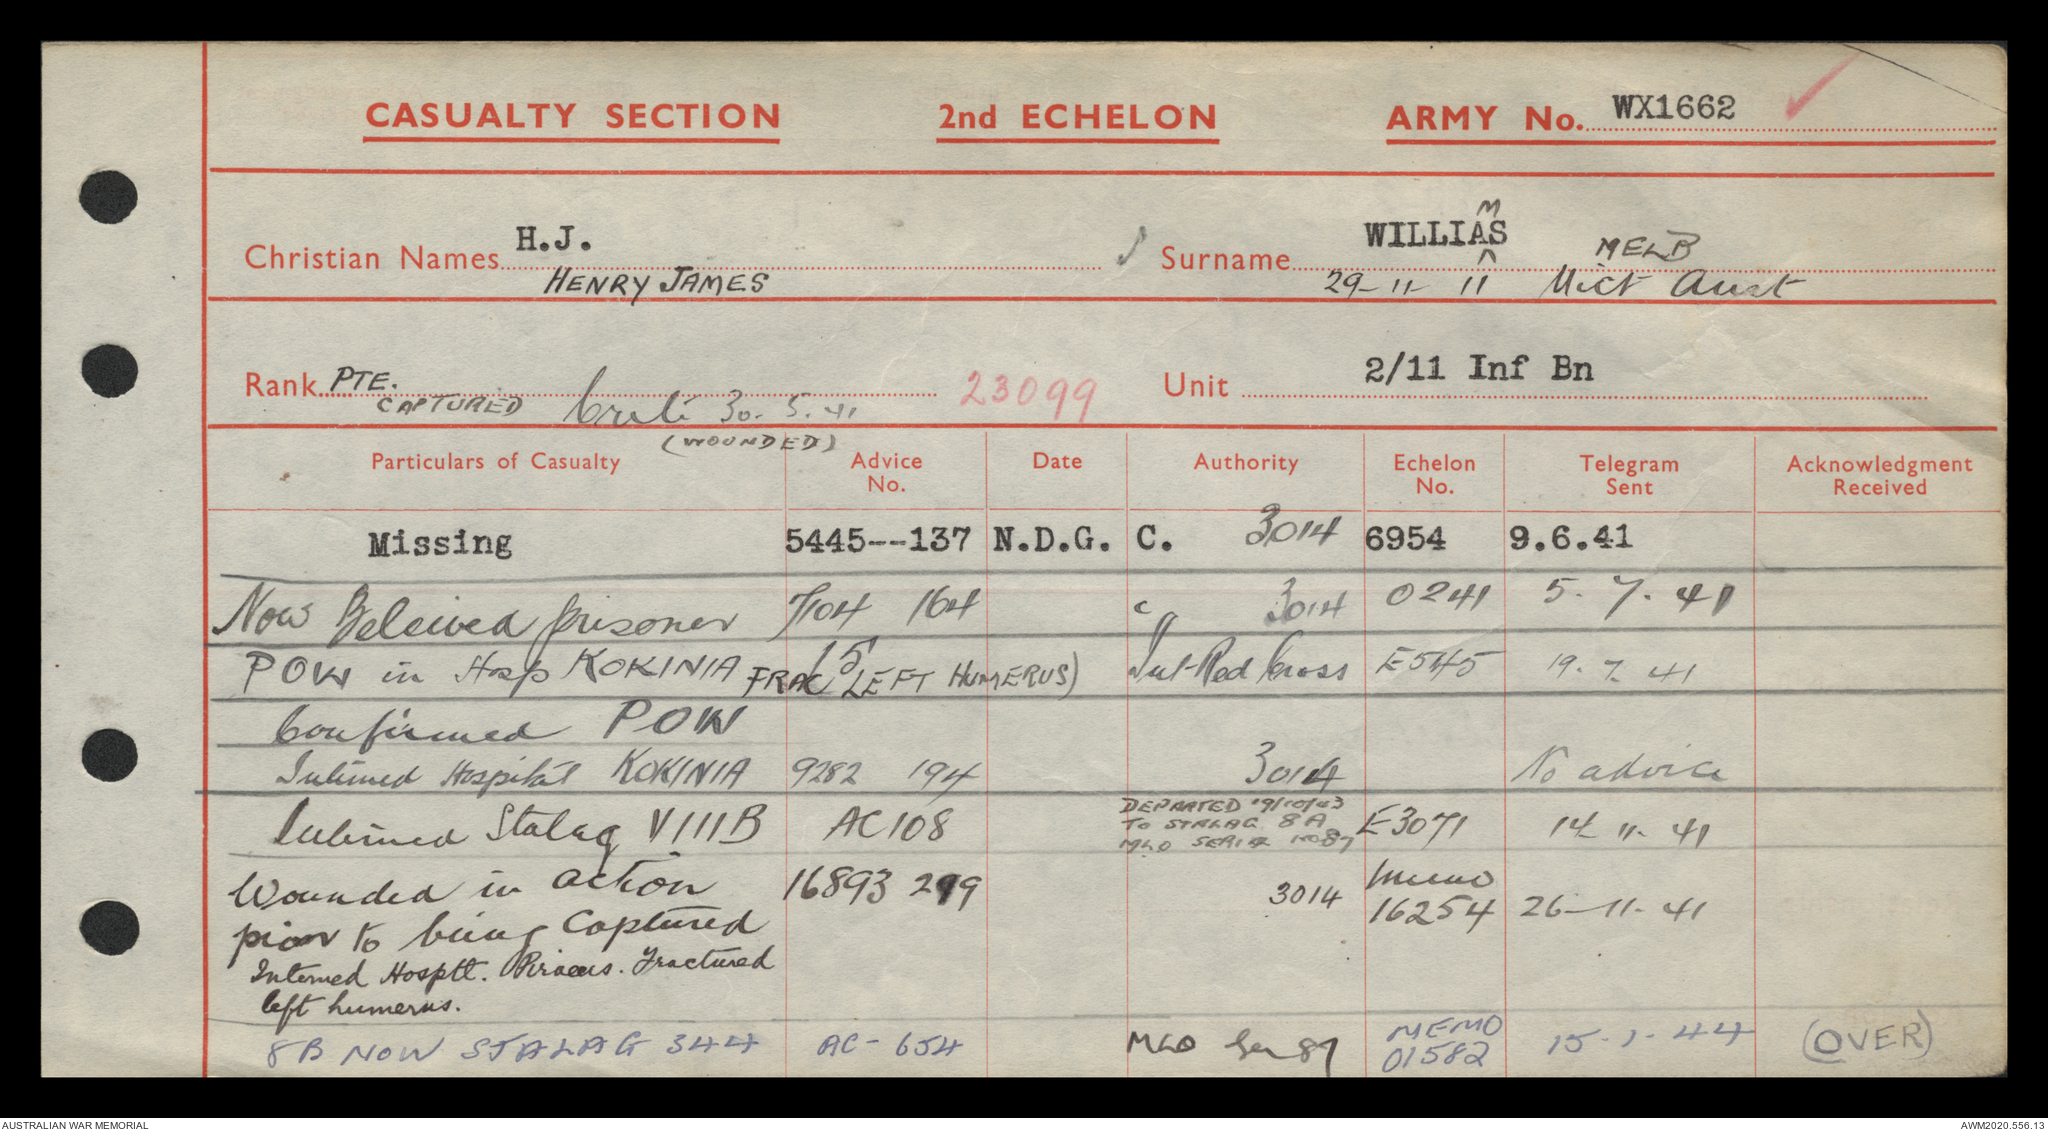 CASUALTY SECTION 2nd ECHELON ARMY No. WX1662
Christian Names H.J. Surname WILLIAMS M MELB
HENRY JAMES 29-11 11 Vict Aust
Rank PTE. 23099 Unit 2/11 Inf Bn
CAPTURED Crete 30.5.41
(WOUNDED)
Particulars of Casualty Advice No. Date Authority Echelon No. Telegram Sent Acknowledgment Received
Missing 5445--137 N.D.G. C. 3014 6954 9.6.41
Now Beleived prisoner 7104 164 C 3014 0241 5.7.41
POW in Hosp KOKINIA 15 FRAC LEFT HUMERUS) Int Red Cross E545 19.7.41
Confirmed POW
Interned Hospital KOKINIA 9282 194 3014 No advice
DEPARTED 19/10/43
Interned Stalag VIIIB AC108 TO STALAG 8A E3071 14-11-41
MLO SERIE NO 87
Wounded in action 16893 299 3014 Memo 16254 26-11-41
prior to being Captured
Interned Hosptl. Piraeus. Fractured
left humerus.
8B NOW STALAG 344 AC-654 MLO Ser 87 MEMO 01582 15-1-44 (OVER)
AUSTRALIAN WAR MEMORIAL AWM2020.556.13